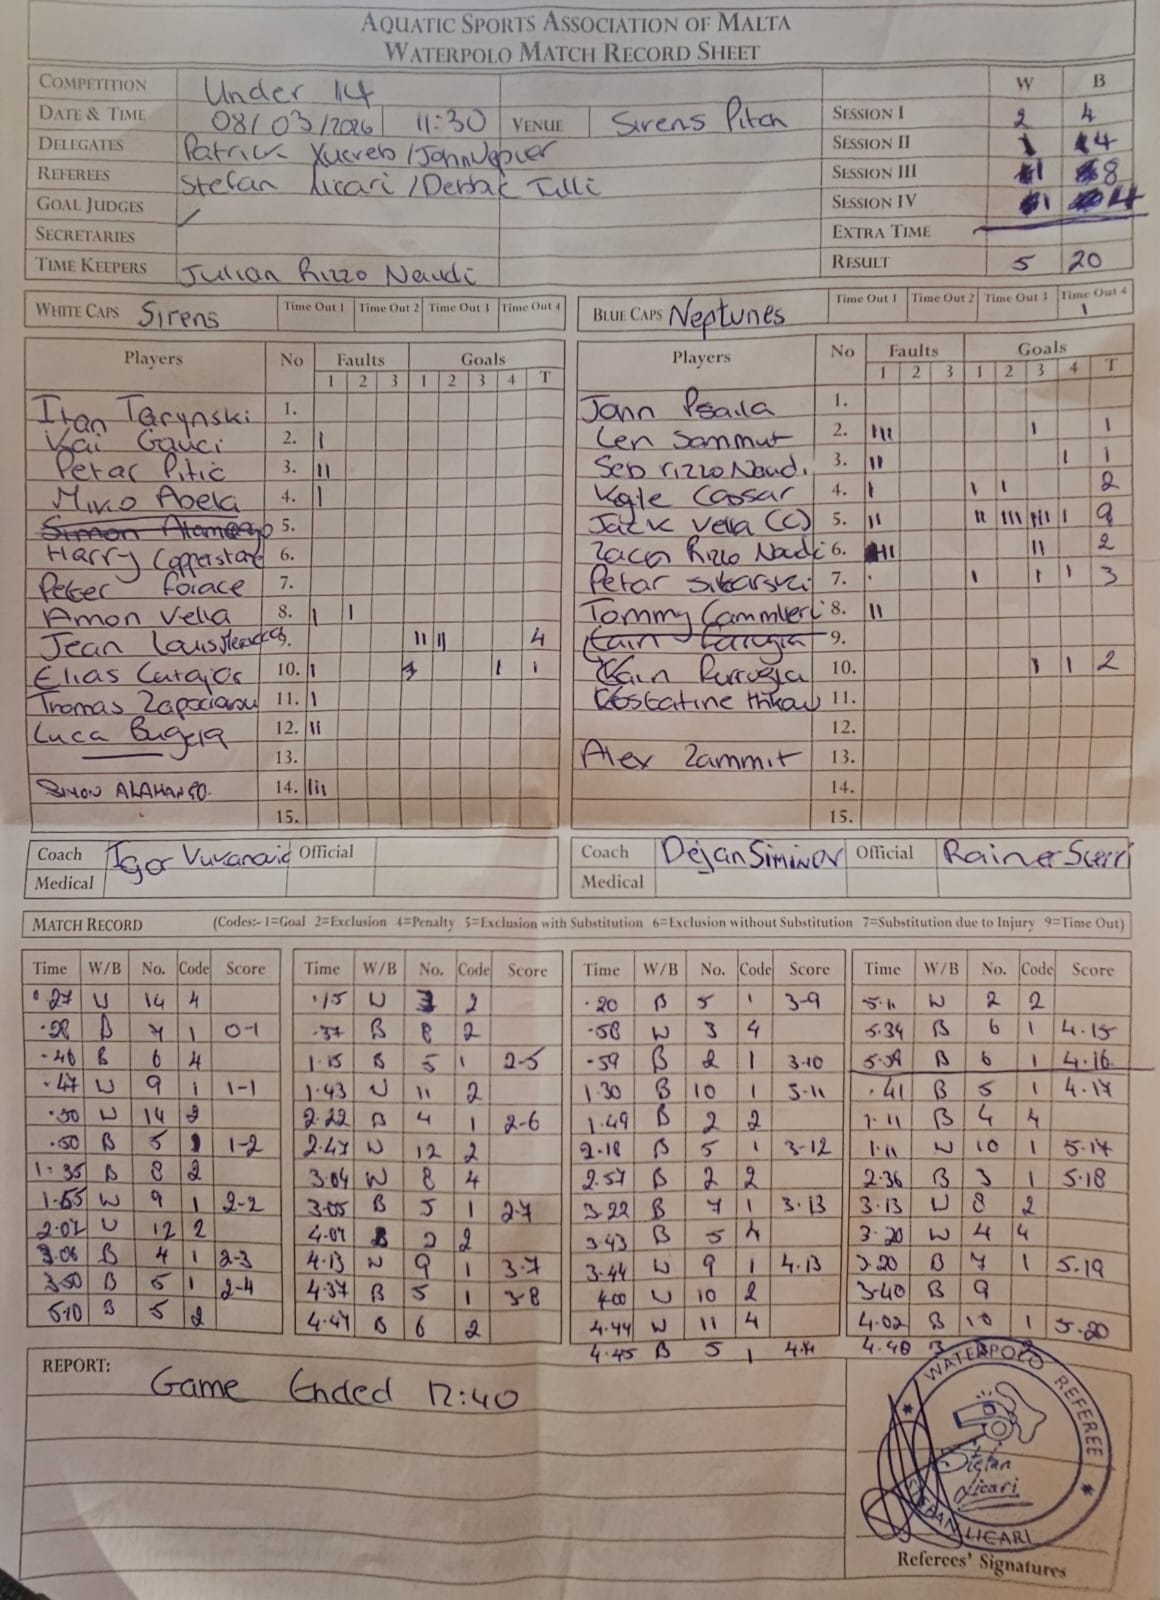 AQUATIC SPORTS ASSOCIATION OF MALTA
WATERPOLO MATCH RECORD SHEET
COMPETITION Under 14 W B
DATE & TIME 08/03/2026 11:30 VENUE Sirens Pitch SESSION I 2 4
DELEGATES Patrick /John SESSION II 1 4
REFEREES Stefan Licari / SESSION III 1 8
GOAL JUDGES / SESSION IV 1 4
SECRETARIES EXTRA TIME
TIME KEEPERS Julian Rizzo Naudi RESULT 5 20
WHITE CAPS Sirens Time Out 1 Time Out 2 Time Out 3 Time Out 4
Players No Faults Goals
1 2 3 1 2 3 4 T
1.
Kai Gauci 2. I
Petar Pitic 3. II
Abela 4. I
5.
Harry 6.
Peter 7.
Vella 8. I I
Jean 9. II II 4
Elias 10. I I 1
Thomas 11. I
Luca 12. II
13.
SIMON ALAMANGO. 14. III
15.
BLUE CAPS Neptunes Time Out 1 Time Out 2 Time Out 3 Time Out 4 I
Players No Faults Goals
1 2 3 1 2 3 4 T
John Psaila 1.
Len Sammut 2. III I 1
Seb Rizzo Naudi 3. II I 1
Kyle Cassar 4. I I I 2
Jack Vella (C) 5. II II III I 9
Zach Rizzo Naudi 6. II 2
Petar 7. I I I 3
Tommy Cammilleri 8. II
9.
Kain Farrugia 10. I I 2
11.
12.
Alex Zammit 13.
14.
15.
Coach Igor Official
Medical
Coach Dejan Official Rainer Scerri
Medical
MATCH RECORD (Codes:- 1=Goal 2=Exclusion 4=Penalty 5=Exclusion with Substitution 6=Exclusion without Substitution 7=Substitution due to Injury 9=Time Out)
Time W/B No. Code Score
.27 W 14 4
.28 B 7 1 0-1
.46 B 6 4
.47 W 9 1 1-1
.50 W 14 2
.50 B 5 1 1-2
1.35 B 8 2
1.55 W 9 1 2-2
2.07 W 12 2
3.06 B 4 1 2-3
3.50 B 5 1 2-4
5.10 B 5 2
Time W/B No. Code Score
.15 W 3 2
.37 B 8 2
1.15 B 5 1 2-5
1.43 W 11 2
2.22 B 4 1 2-6
2.47 W 12 2
3.04 W 8 4
3.05 B 5 1 2-7
4.07 B 2 2
4.13 W 9 1 3-7
4.37 B 5 1 3-8
4.47 B 6 2
Time W/B No. Code Score
.20 B 5 1 3-9
.58 W 3 4
.59 B 2 1 3-10
1.30 B 10 1 3-11
1.49 B 2 2
2.18 B 5 1 3-12
2.57 B 2 2
3.22 B 7 1 3.13
3.43 B 5 4
3.44 W 9 1 4.13
4.00 W 10 2
4.44 W 11 4
4.45 B 5 1
Time W/B No. Code Score
5.11 W 2 2
5.34 B 6 1 4.15
5.59 B 6 1 4.16
.41 B 5 1 4.17
1.11 B 4 4
1.11 W 10 1 5.17
2.36 B 3 1 5.18
3.13 W 8 2
3.20 W 4 4
3.20 B 7 1 5.19
3.40 B 9
4.02 B 10 1 5.20
4.48 B
REPORT:
Game Ended 12:40
WATERPOLO REFEREE
Stefan Licari
STEFAN LICARI
Referees' Signatures